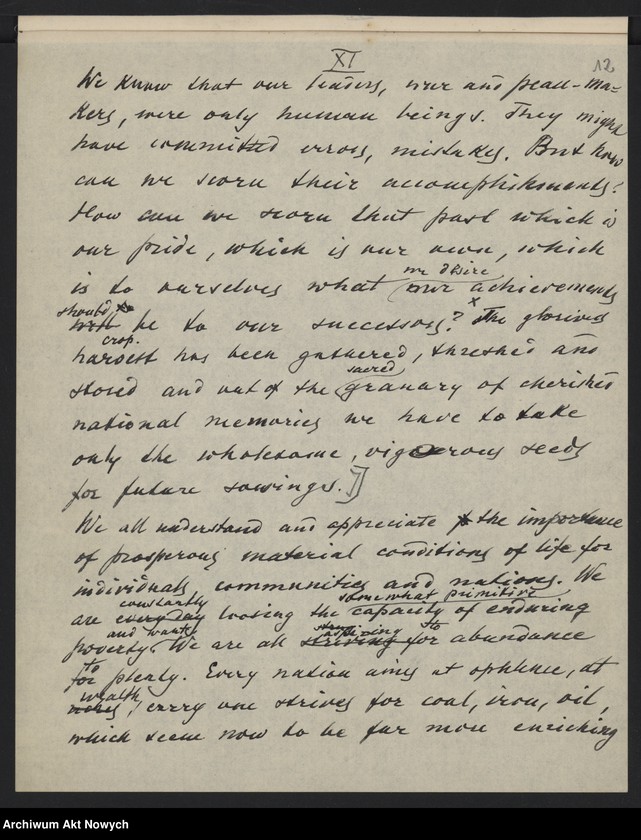 XI
12
We know that our leaders, war and peace-ma-
kers, were only human beings. They might
have committed errors, mistakes. But how
can we scorn their accomplishments?
How can we scorn that past which is
our pride, which is our own, which
we desire
is to ourselves what our achievements
should
be to our successors? The glorious
crop
harvest has been gathered, threshed and
sacred
stored and out of the granary of cherished
national memories we have to take
only the wholesome, vigorous seeds
for future sowings.]
We all understand and appreciate the importance
of prosperous material conditions of life for
individuals communities and nations. We
constantly somewhat primitive
are every day loosing the capacity of enduring
and wants aspiring to
poverty. We are all striving for abundance
to
for plenty. Every nation aims at opulence, at
wealth
riches, every one strives for coal, iron, oil,
which seem now to be far more enriching
Archiwum Akt Nowych